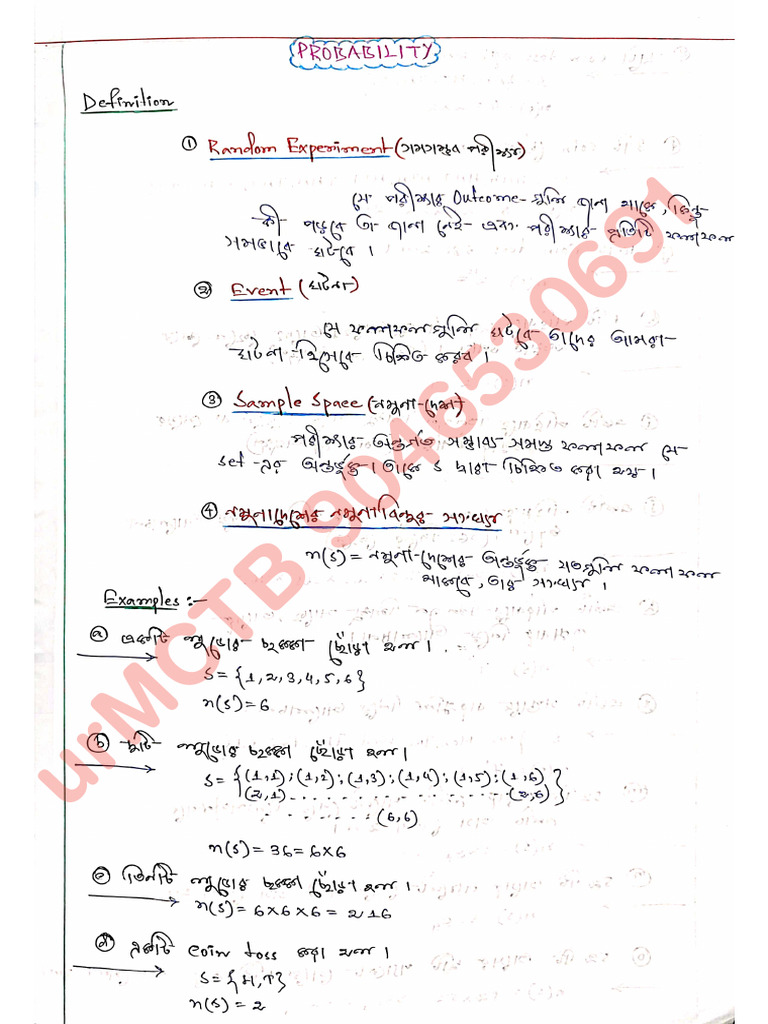 PROBABILITY
Definition
① Random Experiment (সমসম্ভব পরীক্ষা)
যে পরীক্ষার Outcome-গুলি জানা থাকে, কিন্তু
কী পড়বে তা জানা নেই এবং পরীক্ষার প্রতিটি ফলাফল
সমভাবে ঘটবে ।
② Event (ঘটনা)
যে ফলাফলগুলি ঘটবে তাদের আমরা
ঘটনা হিসেবে চিহ্নিত করব ।
③ Sample Space (নমুনা-দেশ)
পরীক্ষার অন্তর্গত সম্ভাব্য সমস্ত ফলাফল যে
set-এর অন্তর্ভুক্ত । তাকে S দ্বারা চিহ্নিত করা হয় ।
④ নমুনাদেশের নমুনাবিন্দুর সংখ্যা
n(s) = নমুনা-দেশের অন্তর্ভুক্ত যতগুলি ফলাফল
থাকবে, তার সংখ্যা ।
Examples :-
ⓐ একটি লুডোর ছক্কা ছোঁড়া হল ।
S = {1,2,3,4,5,6}
n(s) = 6
ⓑ দুটি লুডোর ছক্কা ছোঁড়া হল ।
S = {(1,1); (1,2); (1,3); (1,4); (1,5); (1,6)
(2,1) .................. (2,6)}
........ (6,6)
n(s) = 36 = 6×6
ⓒ তিনটি লুডোর ছক্কা ছোঁড়া হল ।
n(s) = 6×6×6 = 216
ⓓ একটি coin toss করা হল ।
S = {H,T}
n(s) = 2
urMCTB 9046530691